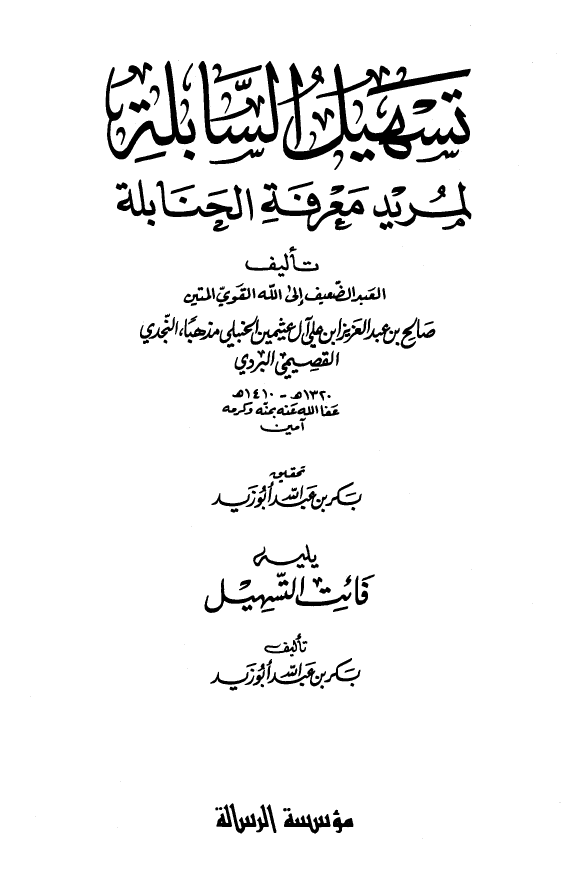 تسهيل السّابلة
لمُريد مَعْرفَةِ الحَنابلة
تأليف
العبد الضّعيف إلى اللّه القويّ المتين
صالح بن عبد العزيز ابن علي آل عثيمين الحنبلي مذهبًا، النّجدي
القصيمي البُردي
١٣٢٠هـ - ١٤١٠هـ
عَفا اللّه عَنه بمنّه وكرمه
آمين
تحقيق
بَكر بن عَبد اللّه أبُو زَيد
يليه
فَائِت التّسْهِيْل
تأليف
بَكر بن عَبد اللّه أبُو زَيد
مؤسسة الرسالة